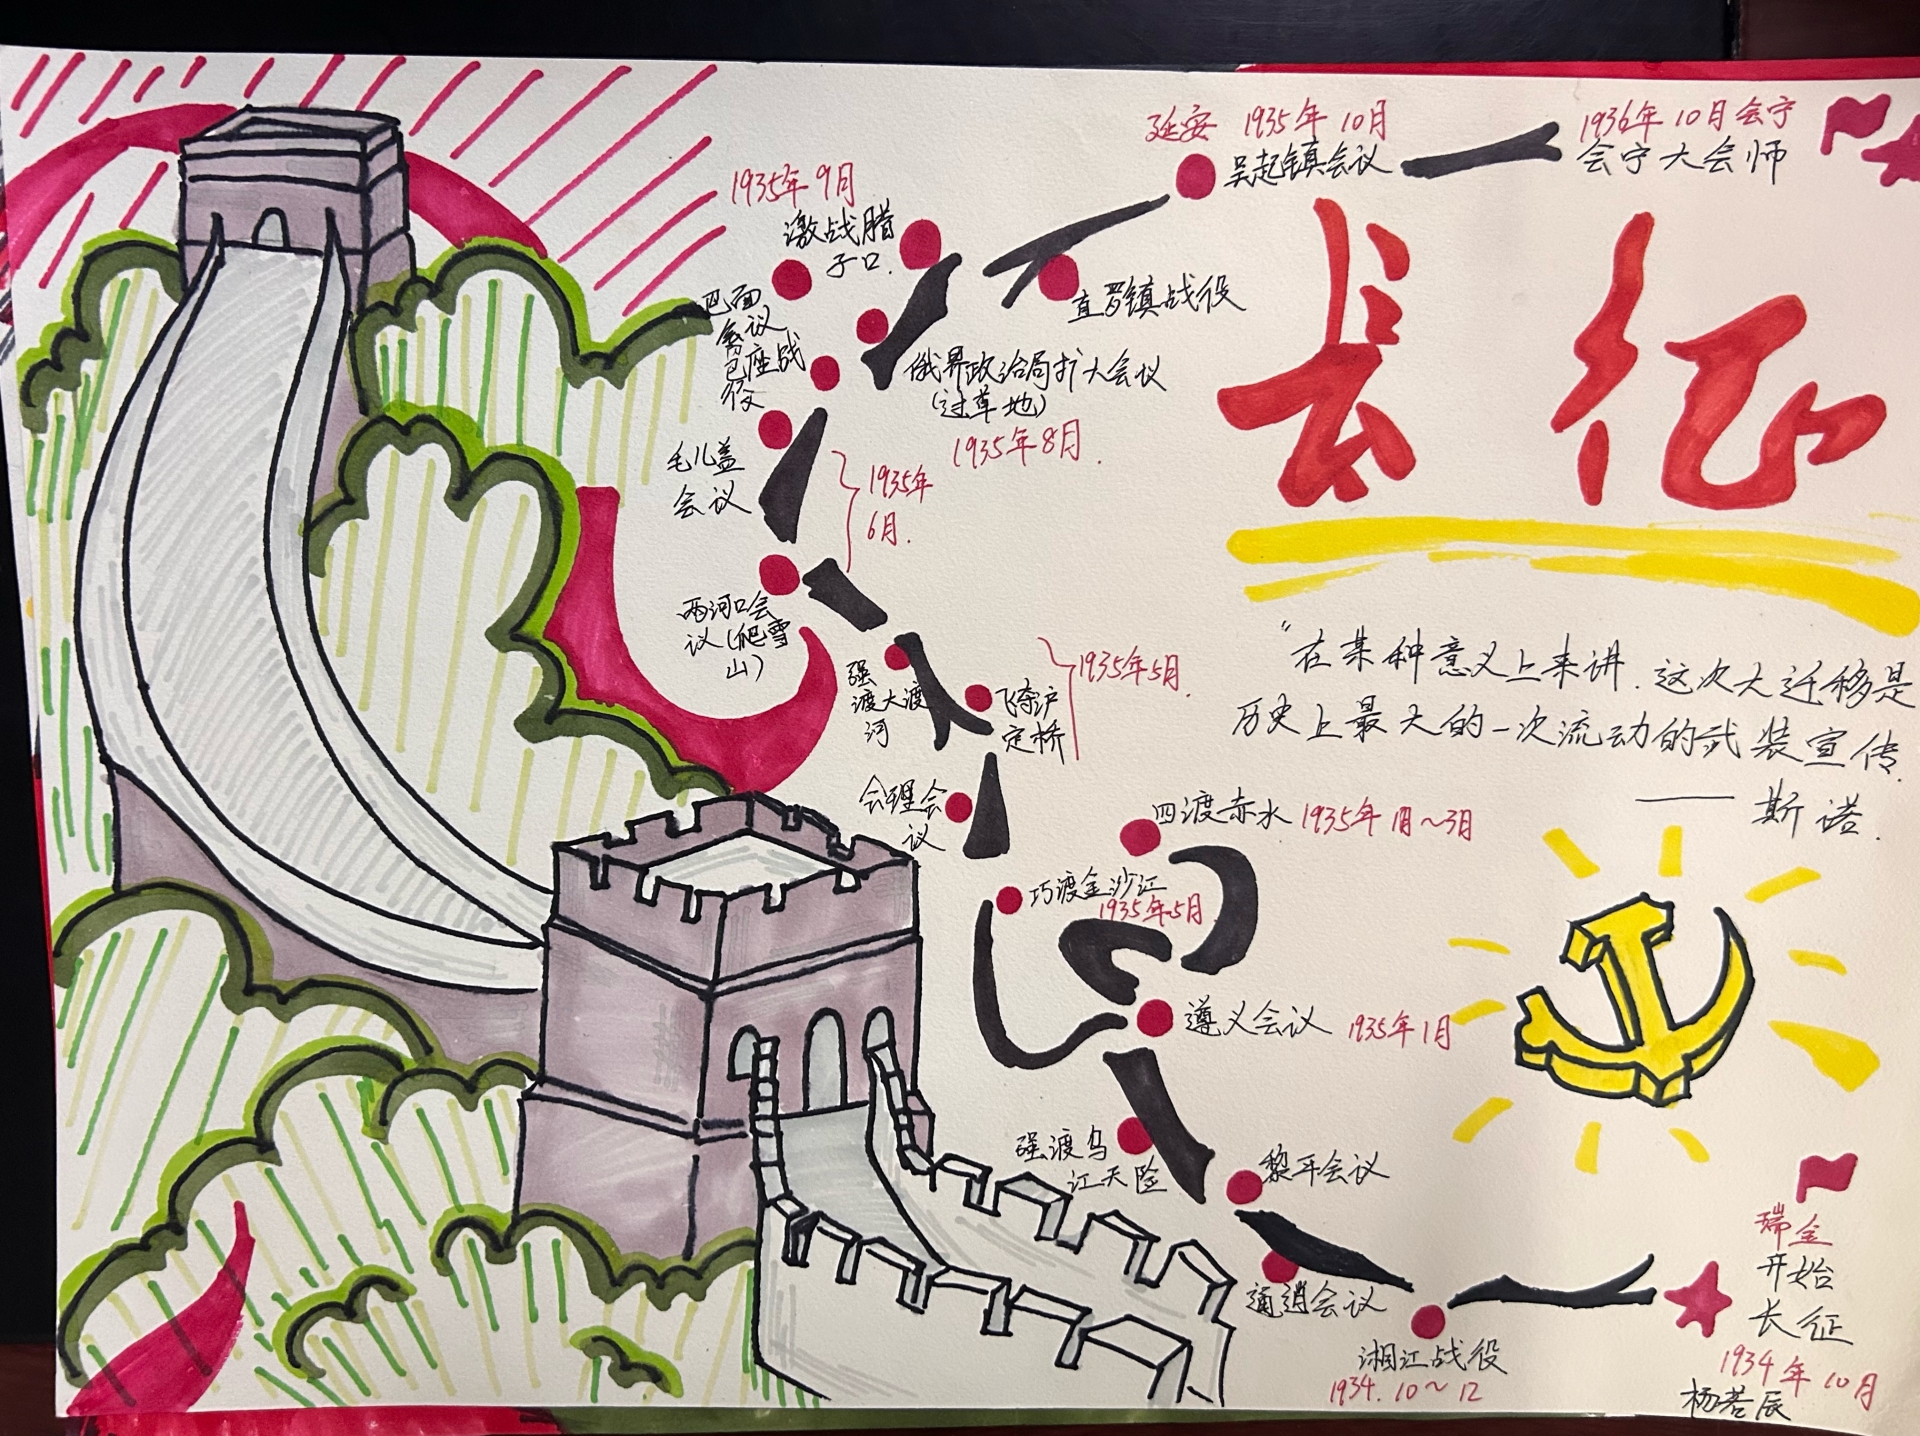 长征
"在某种意义上来讲.这次大迁移是
历史上最大的一次流动的武装宣传.
——斯诺.
瑞金
开始
长征
1934年10月
杨若辰
湘江战役
1934.10~12
通道会议
黎平会议
强渡乌
江天险
遵义会议 1935年1月
四渡赤水 1935年1月~3月
巧渡金沙江
1935年5月
会理会
议
强
渡大渡
河
飞夺泸
定桥
1935年5月.
两河口会
议(爬雪
山)
毛儿盖
会议
1935年
6月.
俄界政治局扩大会议
(过草地)
1935年8月.
巴西
会议
包座战
役
1935年9月
激战腊
子口.
直罗镇战役
延安 1935年10月
吴起镇会议
1936年10月会宁
会宁大会师